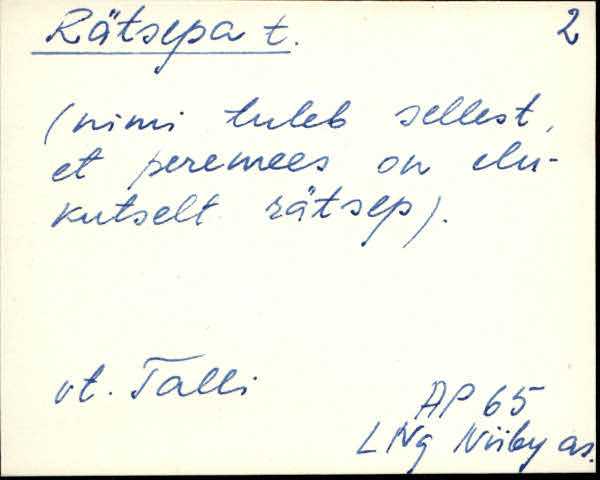 Rätsepa t. 2
(nimi tuleb sellest,
et peremees on elu-
kutselt rätsep).
vt. Talli
AP 65
LNg Niiby as.